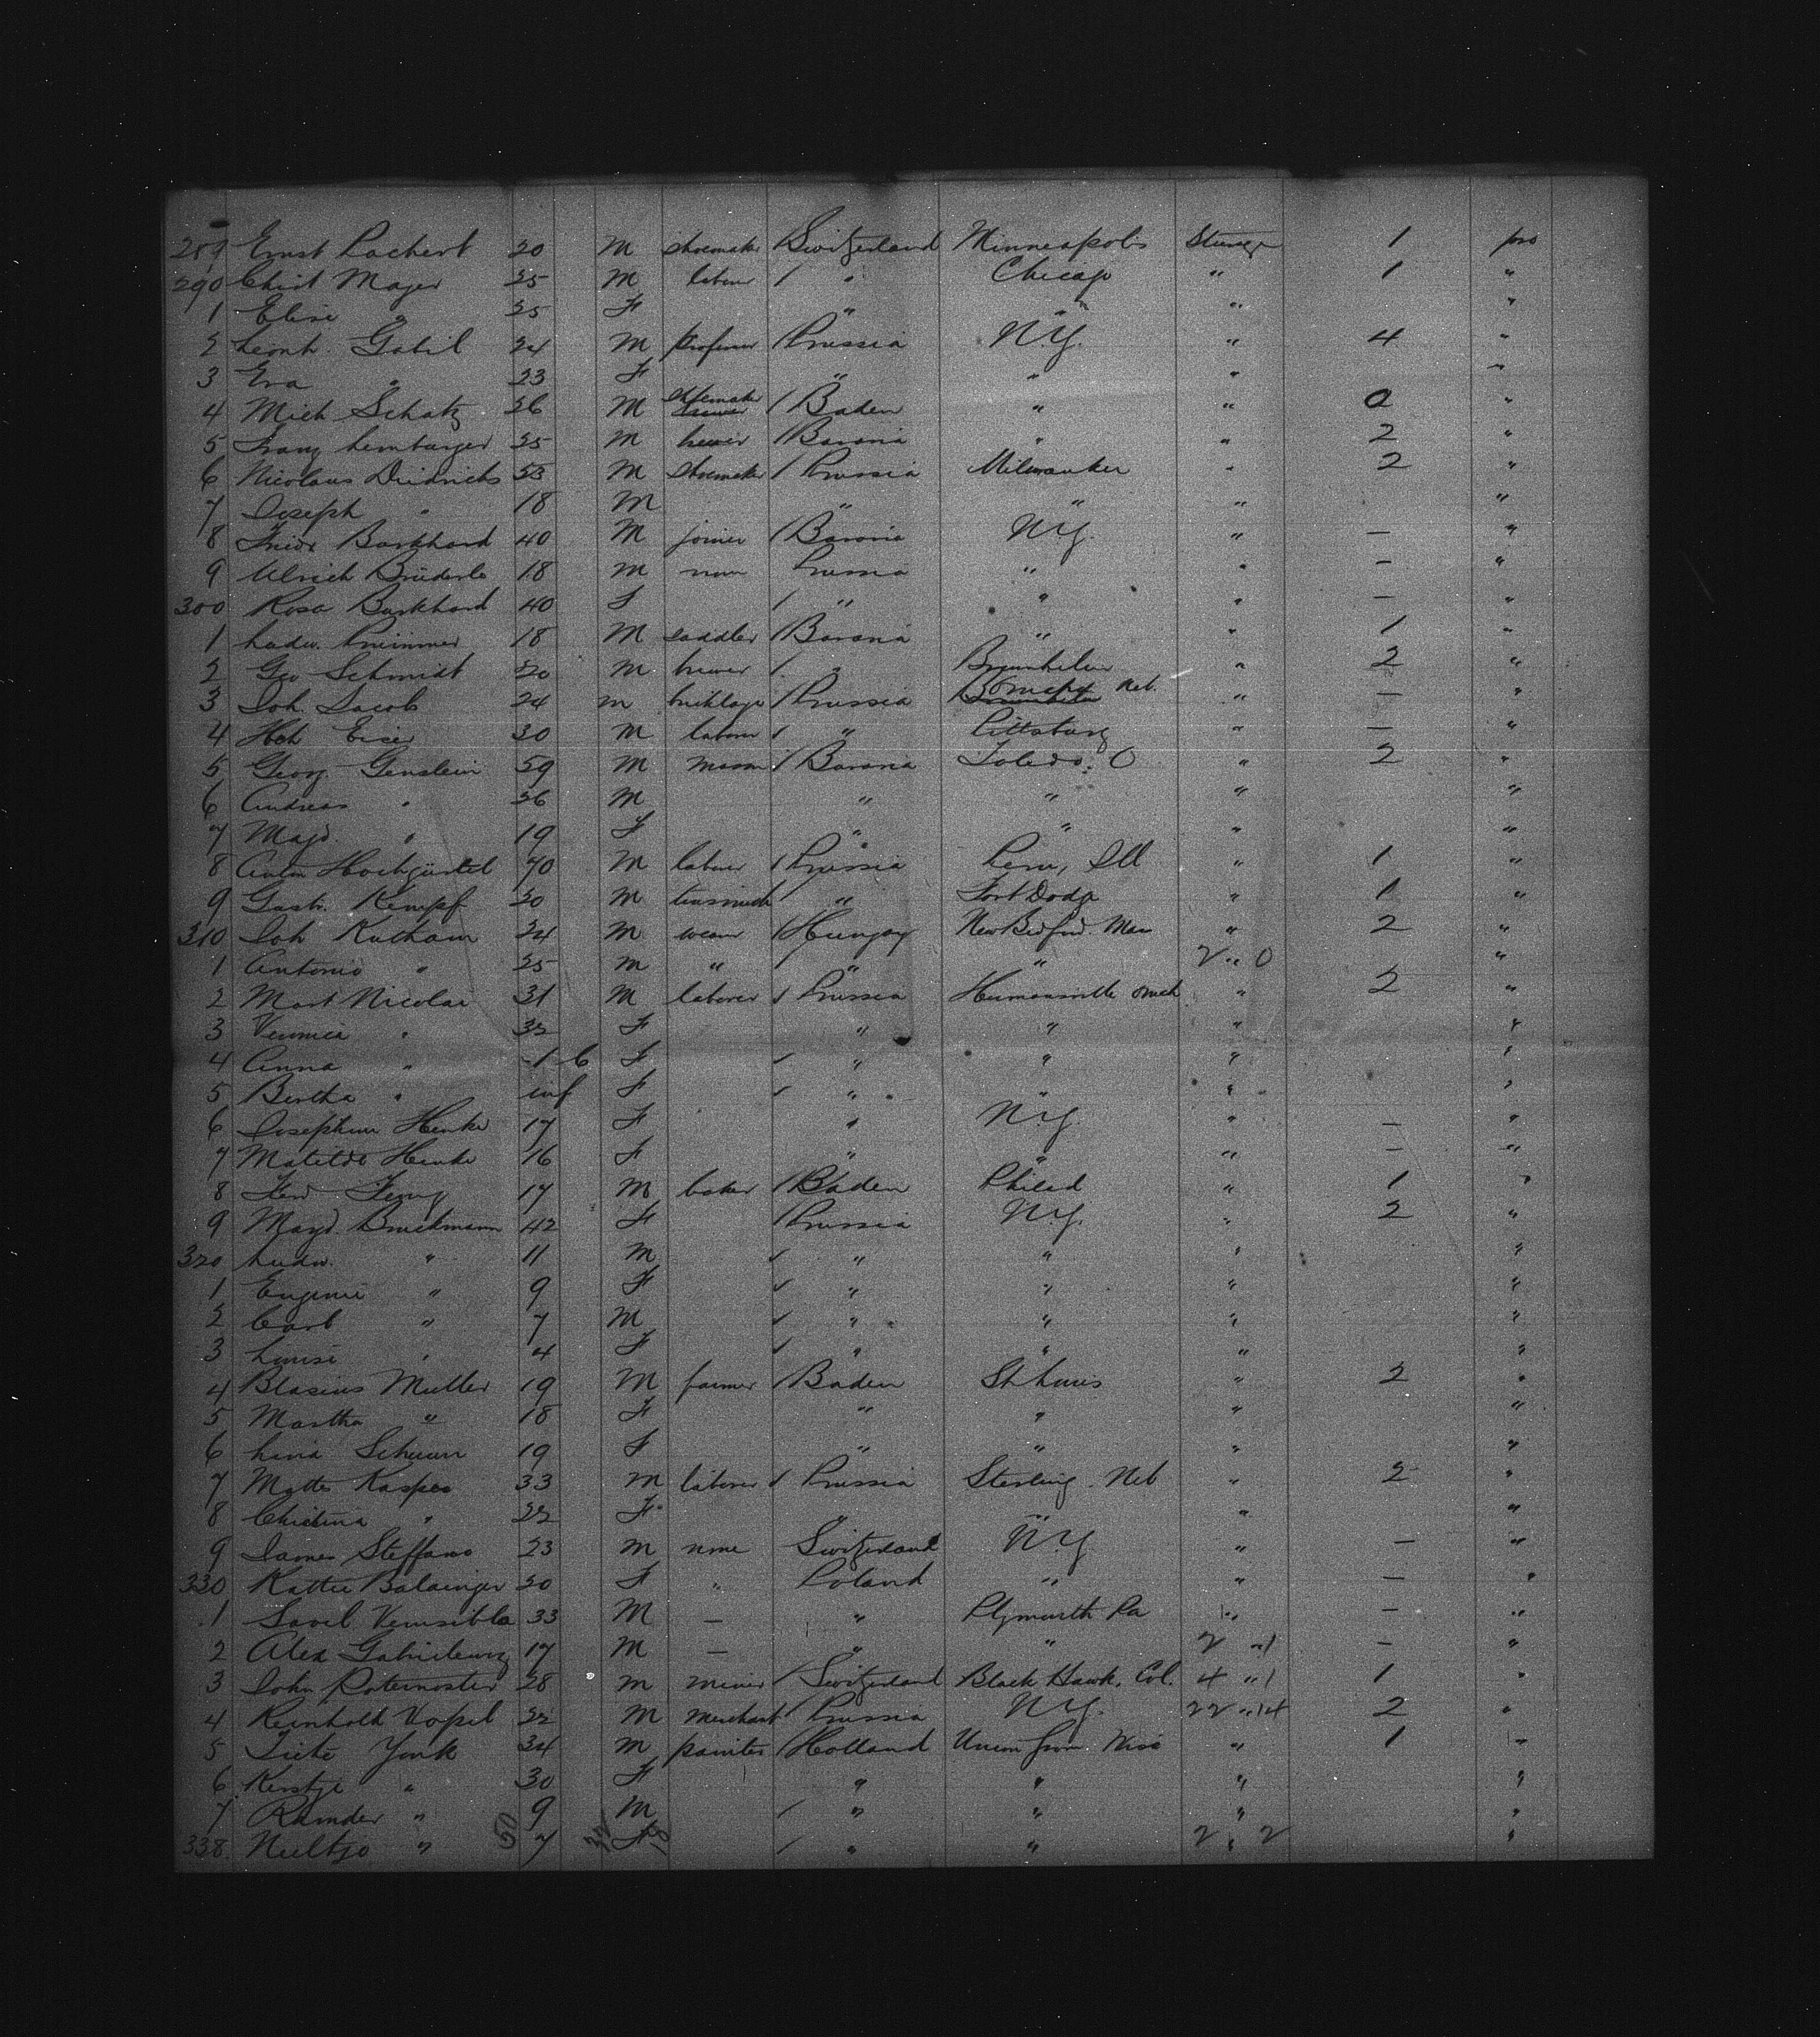 289 Ernst Lachert 20 M shoemaker Switzerland Minneapolis Steerage 1 pro
290 Christ Mayer 25 M laborer / " Chicago " 1 "
1 Elise " 25 F " " " "
2 Leonh. Gabil 24 M professor / Prussia N.Y. " 4 "
3 Eva " 23 F " " " "
4 Mich Schatz 26 M shoemaker / Baden " " 0 "
5 Franz Lemburger 25 M brewer / Bavaria " " 2 "
6 Nicolaus Diedrichs 53 M shoemaker / Prussia Milwaukee " 2 "
7 Joseph " 18 M " " " "
8 Friedr Burkhard 40 M joiner / Bavaria N.Y. " — "
9 Ulrich Brüderle 18 M none Prussia " " — "
300 Rosa Burkhard 40 F / " " " — "
1 Ludw. 18 M saddler / Bavaria " " 1 "
2 Geo Schmidt 20 M brewer / " " 2 "
3 Joh. Jacob 24 M bricklayer / Prussia Omaha Neb. " — "
4 Hch Eiser 30 M laborer / " Pittsburg " — "
5 Georg Genslein 59 M mason / Bavaria Toledo. O " 2 "
6 Andreas " 26 M " " " "
7 Magd. " 19 F " " " "
8 Anton Hochgürtel 70 M laborer / Prussia Peru, Ill " 1 "
9 Gust. Kempf 20 M tinsmith / " Fort Dodge " 1 "
310 Joh Kutham 24 M weaver / Hungary New Bedford. Mass " 2 "
1 Antonio " 25 M " / " " 2 " 0 "
2 Mart Nicolai 31 M laborer / Prussia " 2 "
3 Veronica " 32 F " " " "
4 Anna " 1 6 F / " " " "
5 Bertha " inf F / " " " "
6 Josephine Henke 17 F " N.Y. " — "
7 Matilde Henke 16 F " " " — "
8 Ferd 17 M baker / Baden Philad " 1 "
9 Magd. Bruckmann 42 F / Prussia N.Y. " 2 "
320 Ludw. " 11 M / " " " "
1 Eugenie " 9 F / " " " "
2 Carl " 7 M / " " " "
3 Louise " 4 F / " " " "
4 Blasius Muller 19 M farmer / Baden St Louis " 2 "
5 Martha " 18 F " " " "
6 Lina 19 F " " " "
7 Matts Kaspar 33 M laborer / Prussia Sterling. Neb " 2 "
8 Christina " 22 F " " " "
9 James Steffano 23 M none Switzerland N.Y. " — "
330 Kattie Balainger 20 F " Poland " " — "
1 33 M — " Plymouth Pa " — "
2 Alex 17 M — " " 2 " 1 — "
3 John Paternoster 28 M miner / Switzerland Black Hawk, Col. 4 " 1 1 "
4 Reinhold Vopel 22 M merchant / Prussia N.Y. 22 " 14 2 "
5 Tiete Yonk 34 M painter / Holland Union Wisc " 1 "
6 " 30 F " " " "
7 Reinder " 9 M / " " " "
338. Neeltjo " 7 F / " " 2 " 2 "
50 32 18